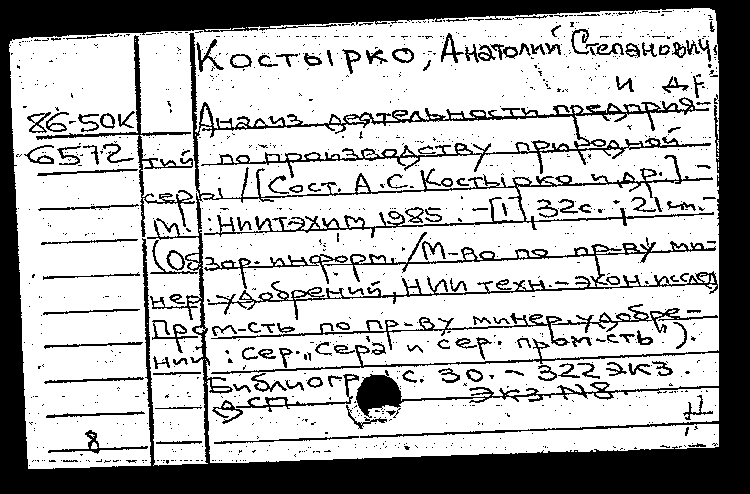 Костырко, Анатолий Степанович
и др.
86-50К Анализ деятельности предприя-
6572 тий по производству природной
серы / [Сост. А.С. Костырко и др.]. -
М. : НИИТЭХИМ, 1985. - [1], 32с. ; 21см. -
(Обзор. информ. / М-во по пр-ву ми-
нер. удобрений, НИИ техн.-экон. исслед
пром-сть по пр-ву минер. удобре-
ний : сер. „Сера и сер. пром-сть").
Библиогр.: с. 30. - 322 экз.
в сп. экз N8.
8